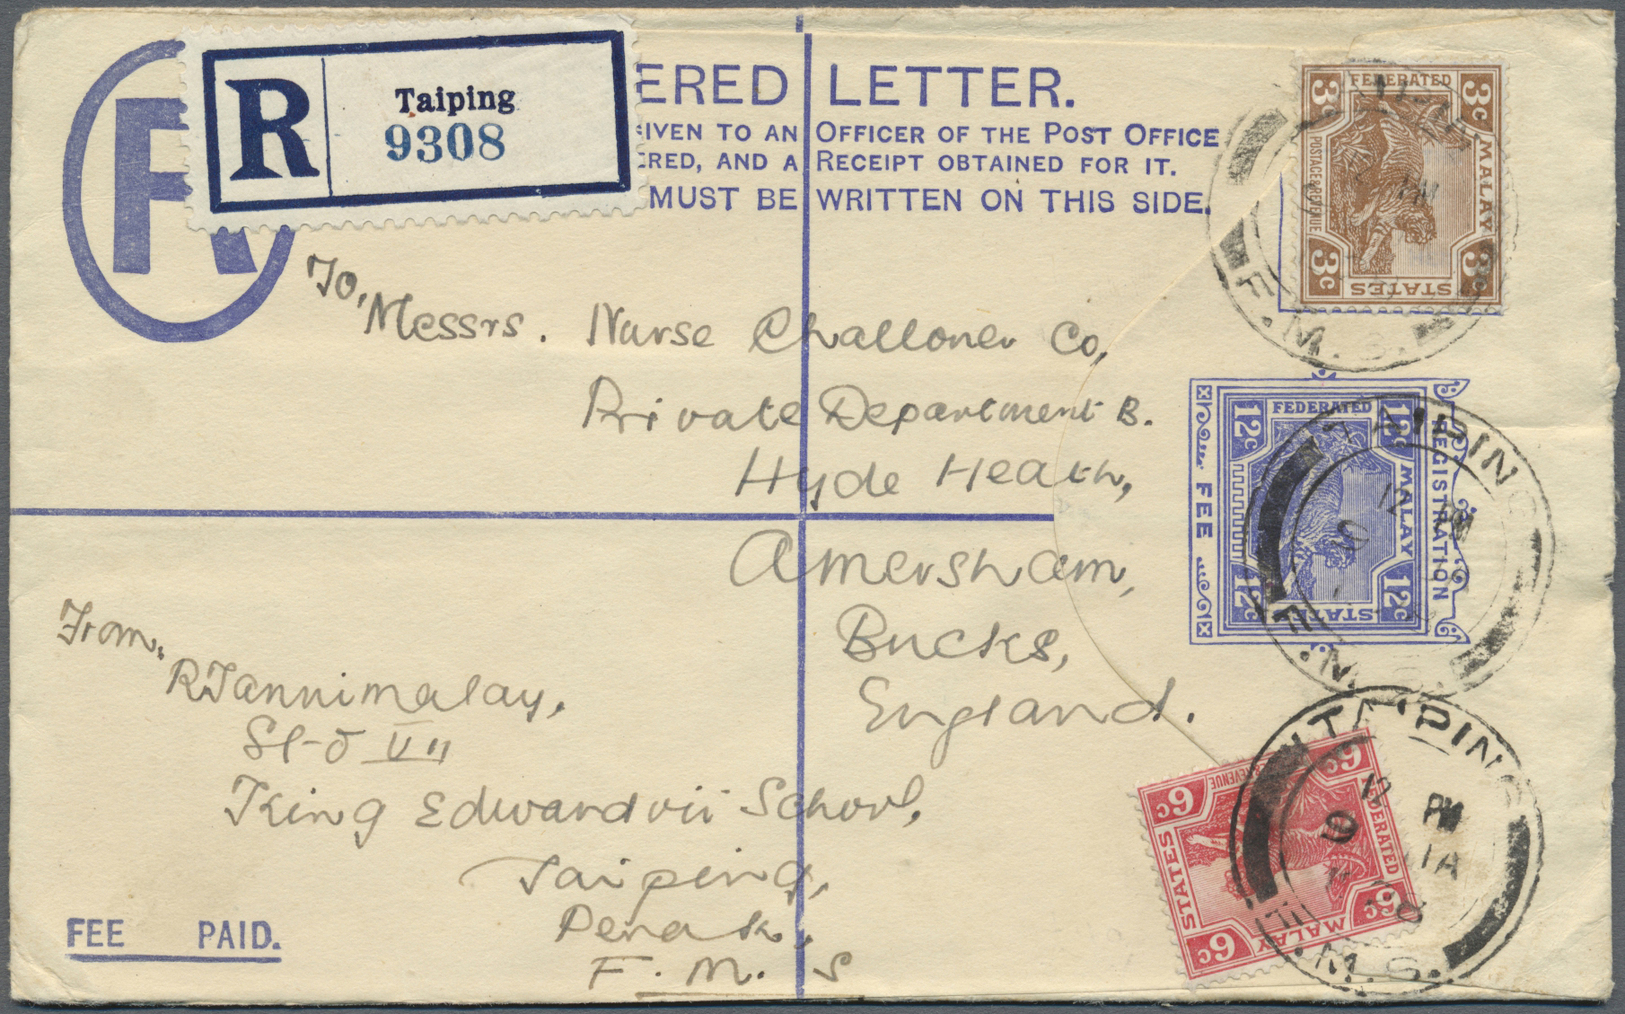 R
Taiping
9308
ERED LETTER.
GIVEN TO AN OFFICER OF THE POST OFFICE
ERED, AND A RECEIPT OBTAINED FOR IT.
MUST BE WRITTEN ON THIS SIDE.
To,
Messrs. Nurse Challoner Co,
Private Department B.
Hyde Heath,
Amersham,
Bucks,
England.
From,
R Tannimalay,
VII
King Edward vii School,
Taiping,
Perak,
F. M. S
FEE PAID.
FEDERATED MALAY STATES
POSTAGE & REVENUE
3c 3c 3c 3c
F. M. S.
REGISTRATION
FEE
FEDERATED MALAY STATES
12c 12c 12c 12c
TAIPING
12 PM
F. M. S.
FEDERATED MALAY STATES
REVENUE
6c 6c 6c 6c
TAIPING
12 PM
F. M. S.